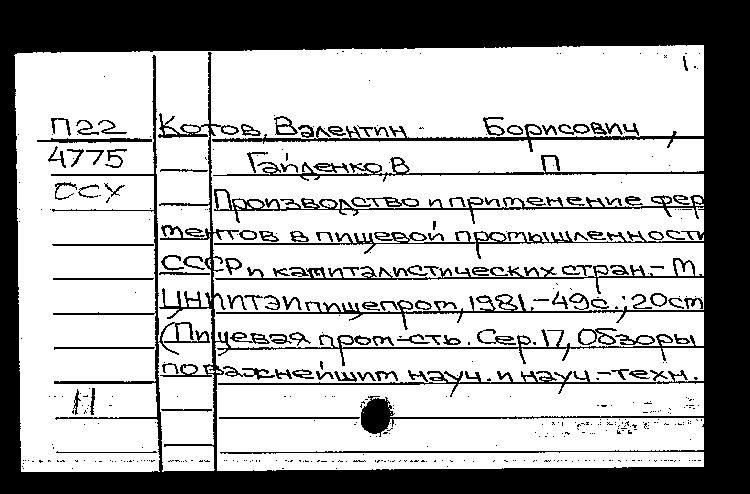 1.
П22 Котов, Валентин Борисович,
4775 Гайденко, В П
ОСУ Производство и применение фер
ментов в пищевой промышленности
СССР и капиталистических стран. - М.
ЦНИИТЭИпищепром, 1981. - 49с.; 20см
(Пищевая пром-сть. Сер. 17, Обзоры
по важнейшим науч. и науч.-техн.
Н